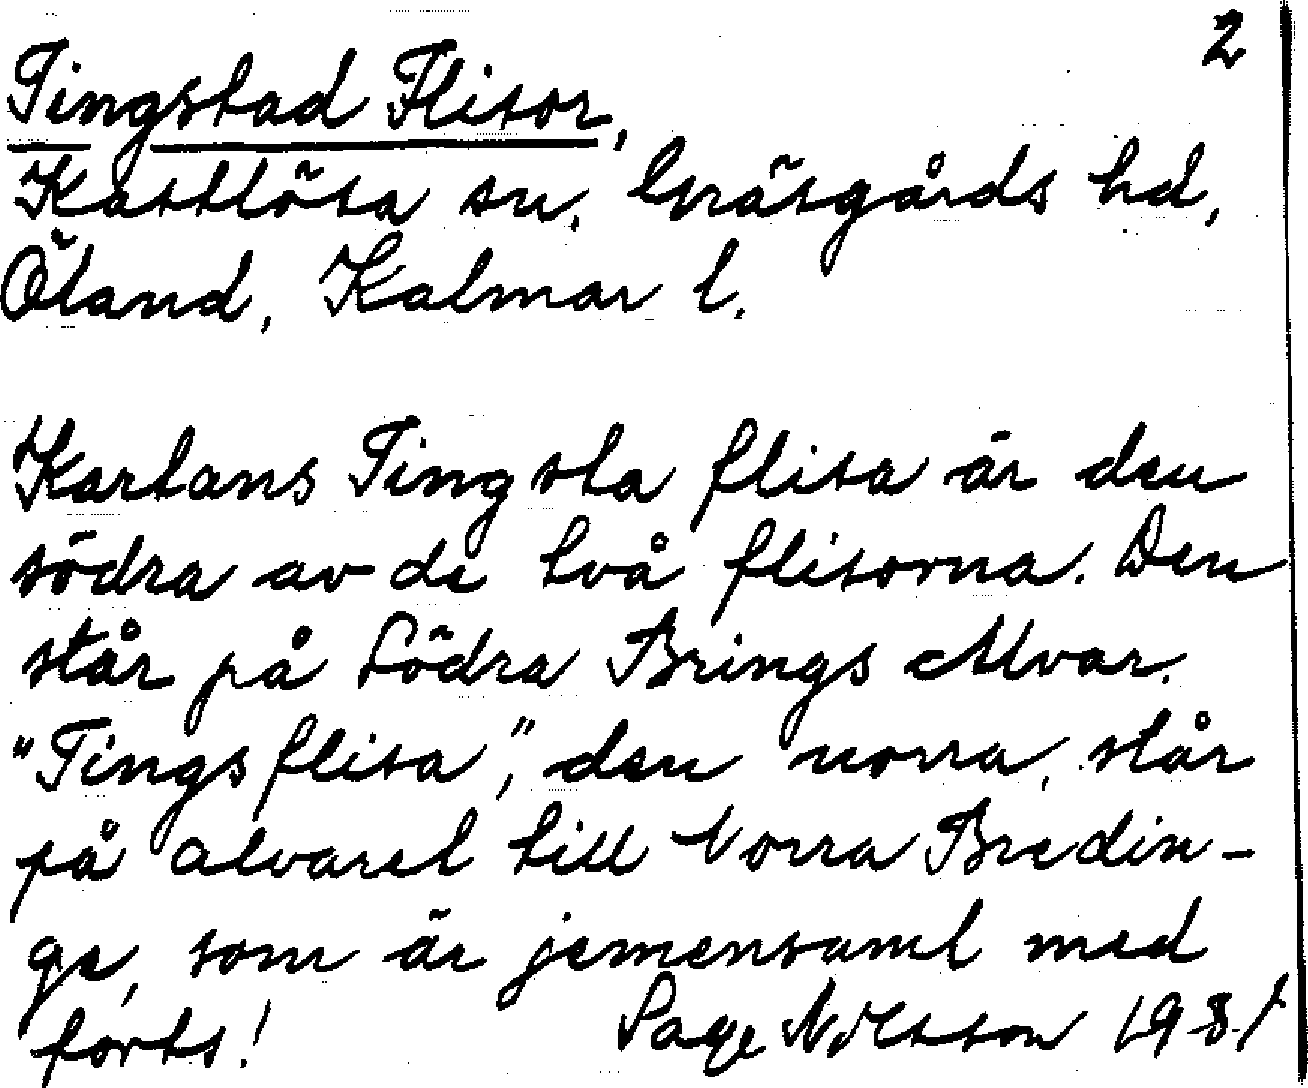 2
Tingstad Flisor,
Kastlösa sn. Gräsgårds hd,
Öland, Kalmar l.
Kartans Tingsta flisa är den
södra av de två flisorna. Den
står på Södra Brings Alvar.
"Tings flisa", den norra, står
på alvaret till Norra Bredin-
ge, som är jemensamt med
forts! Page Nilsson 1981